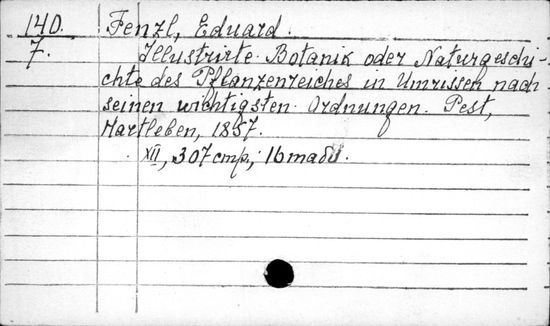 140.
7.
Fenzl, Eduard.
Illustrirte Botanik oder Naturgeschi-
chte des Pflanzenreiches in Umrissen nach
seinen wichtigsten Ordnungen. Pest,
Hartleben, 1857.
XII, 307 стр.;